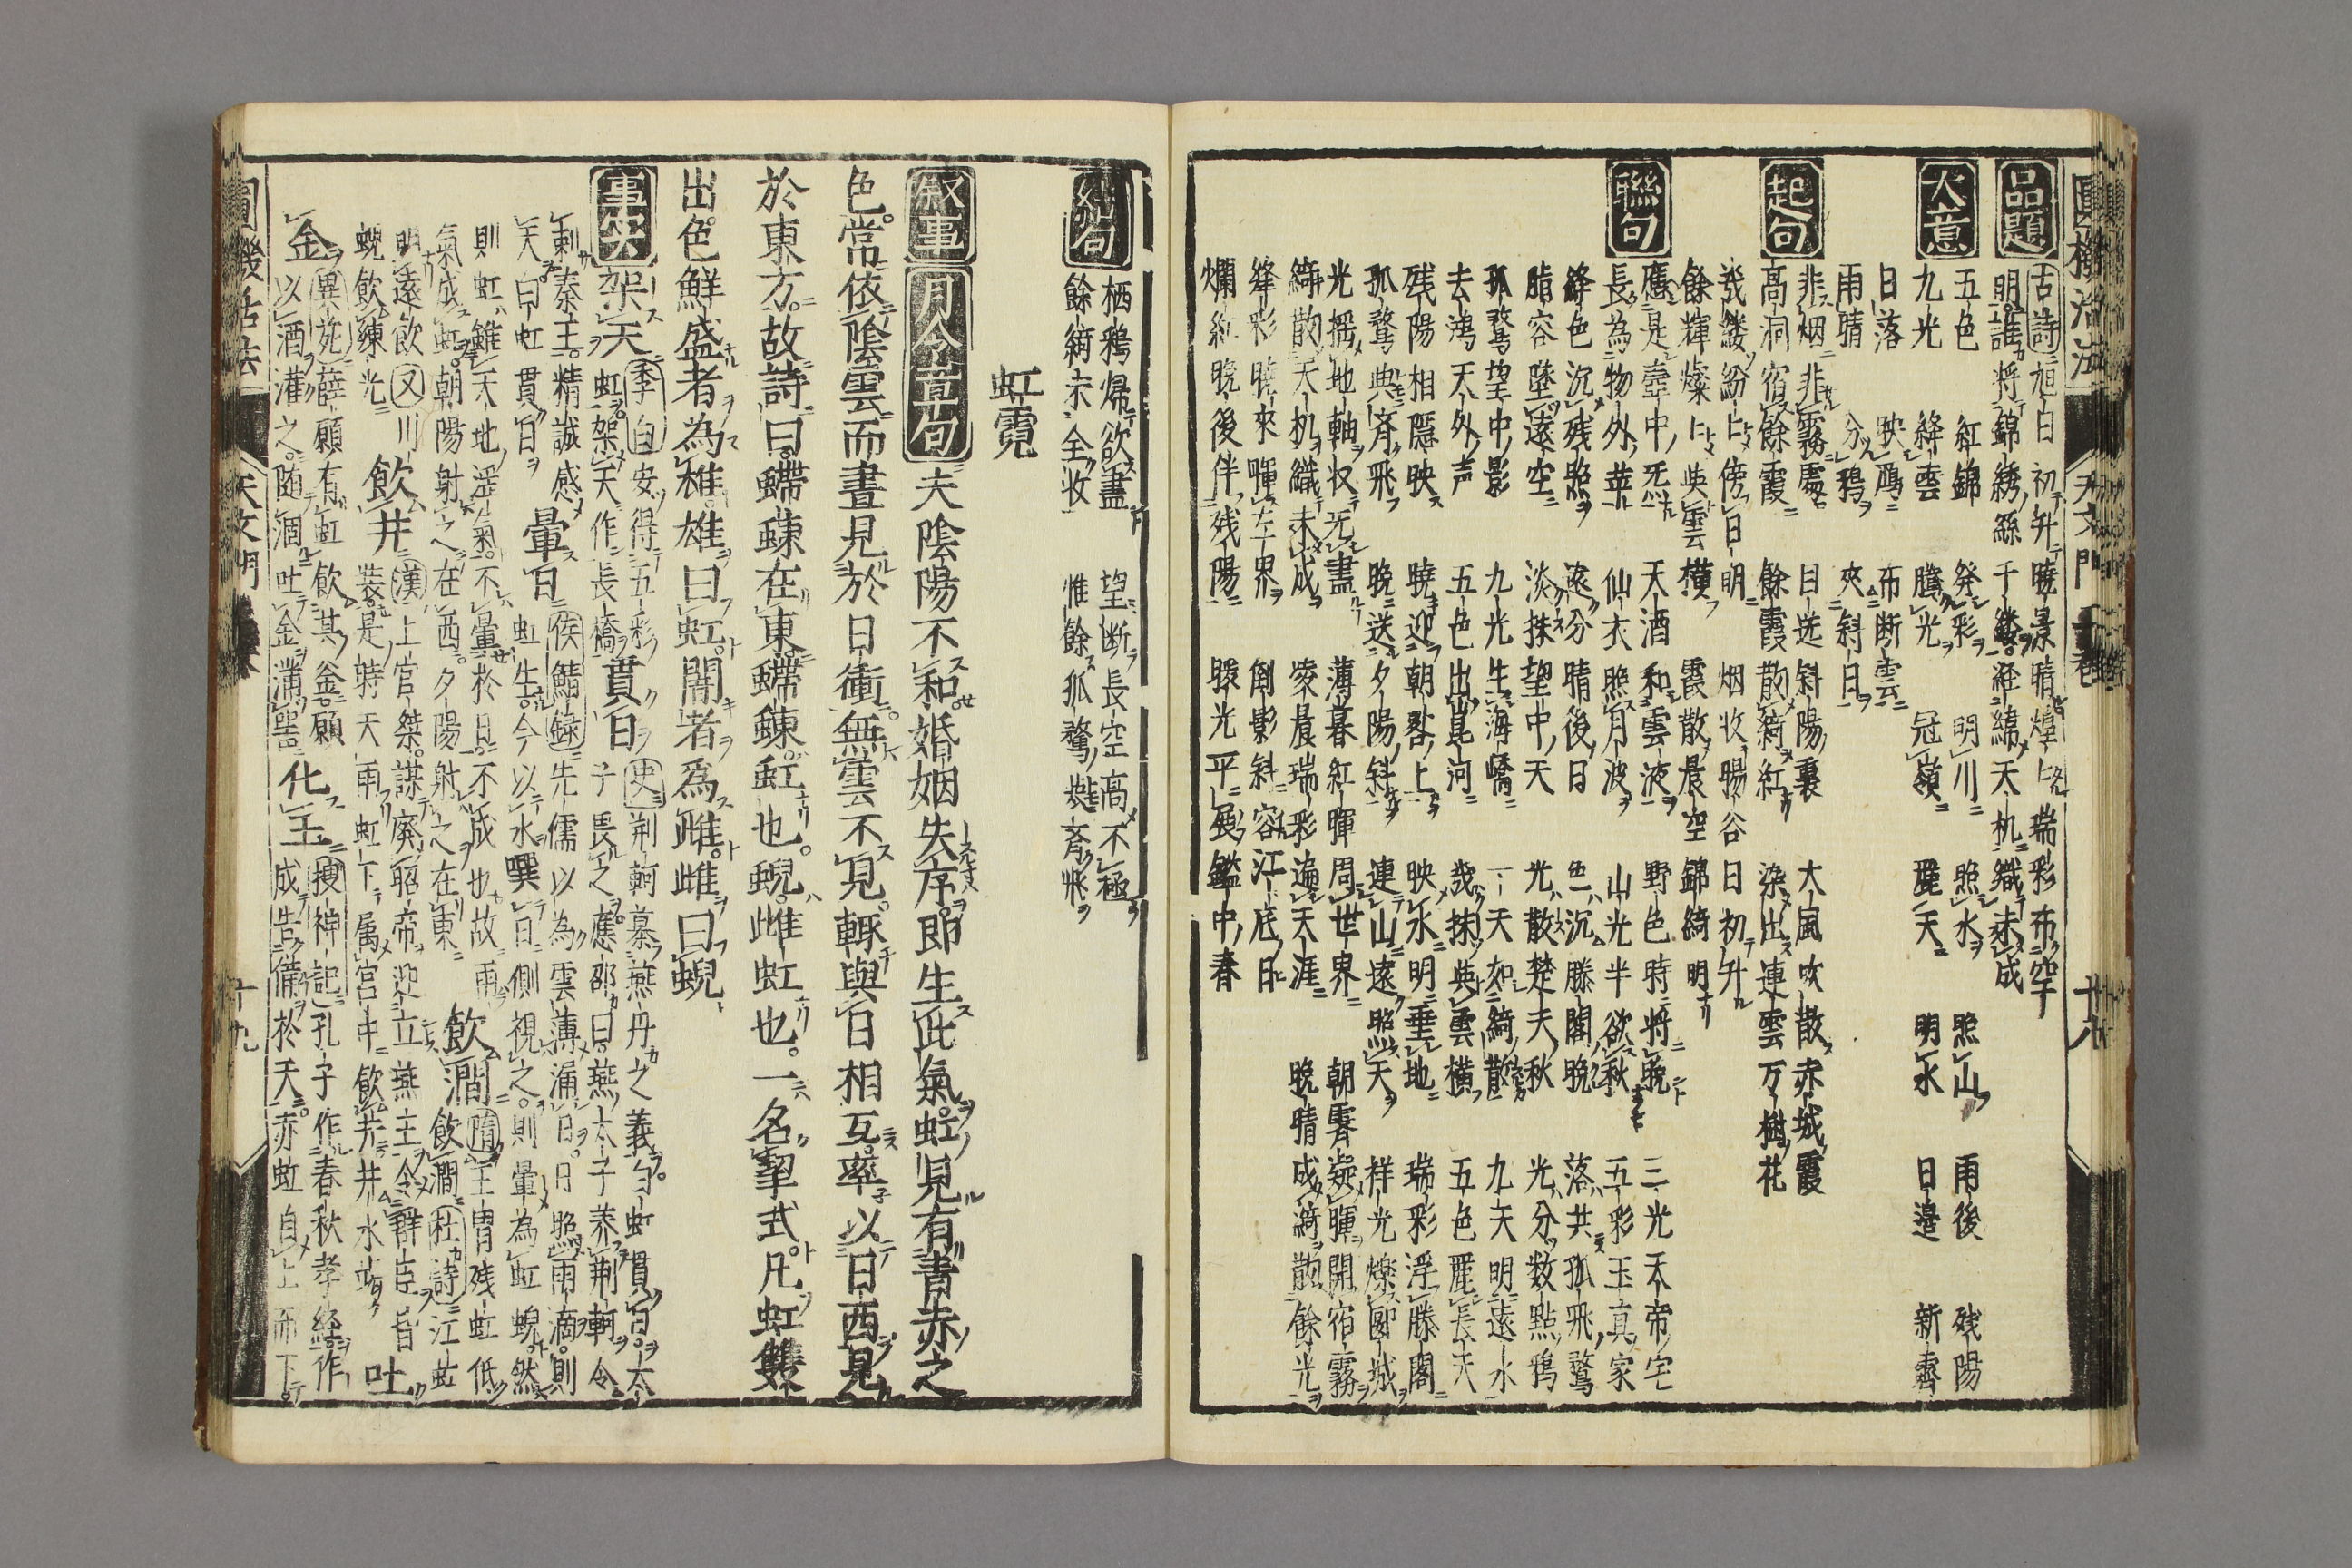 圓機活法 天文門 十八
品題 古詩 旭日初升曉景晴 煌煌瑞彩布空
明 誰將錦綉絲千縷 經緯天机織未成
大意 五色 紅錦 發彩 明川 照水 照山 雨後 殘陽
九光 絳雲 騰光 冠嶺 麗天 明水 日邊 新霽
日落 映鴻 布断雲
雨晴 分鴉 夾斜日
起句 非烟非霧處 日送斜陽裏 大風吹散赤城霞
高洞宿餘霞 餘霞散綺紅 染出連雲万樹花
幾縷紛紛傍日明 烟收暘谷日初升
餘輝燦燦映雲橫 霞散晨空錦綺明
聯句 應是壺中 天酒和雲液 野色時將晩 三光天帝宅
長為物外 仙衣照月波 山光半欲秋 五彩玉真家
絳色沉残照 遠分晴後日 色沉滕閣晩 落共孤飛鶩
脂容墜遠空 淡抹望中天 光散楚天秋 光分数點鴉
孤鶩望中影 九光生海嶠 一天如綺散 九天明遠水
去鴻天外声 五色出崑河 幾抹與雲橫 五色麗長天
残陽相隱映 曉迎朝暾上 映水明垂地 瑞彩浮滕閣
孤鶩與齊飛 晩送夕陽斜 連山遠照天 祥光爍圖城
光揺地軸收无盡 薄暮紅暉周世界 朝霽凝暉開宿霧
綺散天机織未成 凌晨瑞彩遍天涯 晩晴成綺散餘光
絳彩曉來暉左界 倒影斜容江底日
爛紅晩後伴残陽 䁔光平展鑑中春
妙句 栖鴉帰欲盡 望断長空高不極
餘綺未全收 惟餘孤鶩與齊飛
虹霓
叙事 月令章句 夫陰陽不和婚姻失序即生此氣虹見有青赤之
色常依陰雲而晝見於日衝無雲不見輙與日相互率以日西見
於東方故詩曰蝃蝀在東蝃蝀虹也蜺雌虹也一名挈貳凡虹雙
出色鮮盛者為雄雄曰虹闇者爲雌雌曰蜺
事実 架天 李白安得五彩虹架天作長橋 貫日 史荊軻慕燕丹之義白虹貫日太子畏之應邵曰燕太子養荊軻令
刺秦王精誠感天白虹貫日 暈日 侯鯖録先儒以為雲薄漏日日照雨滴則虹生今以水噀日側視之則暈為虹蜺然
則虹雖天地滛氣不暈於日不成也故雨氣成虹朝陽射之在西夕陽射之在東 飲澗 隋王冑残虹低飲澗杜詩江虹
明遠飲又川蜺飲練光 飲井 漢上官桀謀廢昭帝迎立燕王令群臣皆裝是時天雨虹下属宮中飲井井水竭 吐
金 異苑薛願有虹飲其釜願以酒灌之随涸吐金滿器 化玉 搜神記孔子作春秋孝経作成告備於天赤虹自上而下
圓機活法 天文門 十九